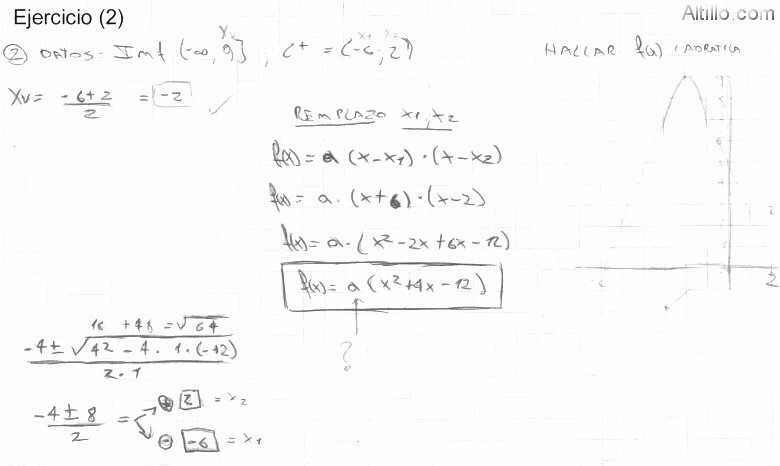 Ejercicio (2)
Altillo.com
Yv
x1 x2
② DATOS - Imf (-∞, 9] , C+ = (-6, 2)
HALLAR f(x)
Xv = -6+2/2 = -2
REMPLAZO x1, x2
f(x) = a (x-x1) · (x-x2)
f(x) = a · (x+6) · (x-2)
f(x) = a · (x² - 2x + 6x - 12)
f(x) = a (x² + 4x - 12)
?
16 + 48 = √64
-4 ± √4² - 4 · 1 · (-12)
2 · 1
-4 ± 8 / 2 =
⊕ 2 = x2
⊖ -6 = x1